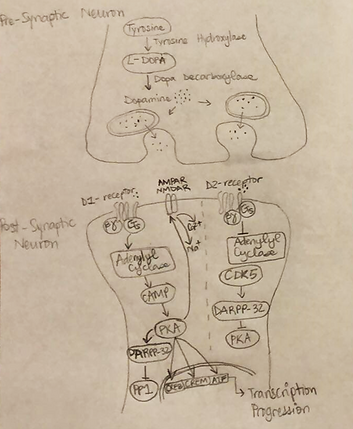 Pre-Synaptic Neuron
Tyrosine
Tyrosine Hydroxylase
L-DOPA
Dopa Decarboxylase
Dopamine
D1-receptor
AMPAR
NMDAR
D2-receptor
Post-Synaptic
Neuron
βγ
βγ
Ca+
Na+
Adenylyl
Cyclase
Adenylyl
Cyclase
cAMP
CDK5
PKA
DARPP-32
DARPP-32
PKA
PP1
CREB
CREM
ATF
Transcription
Progression